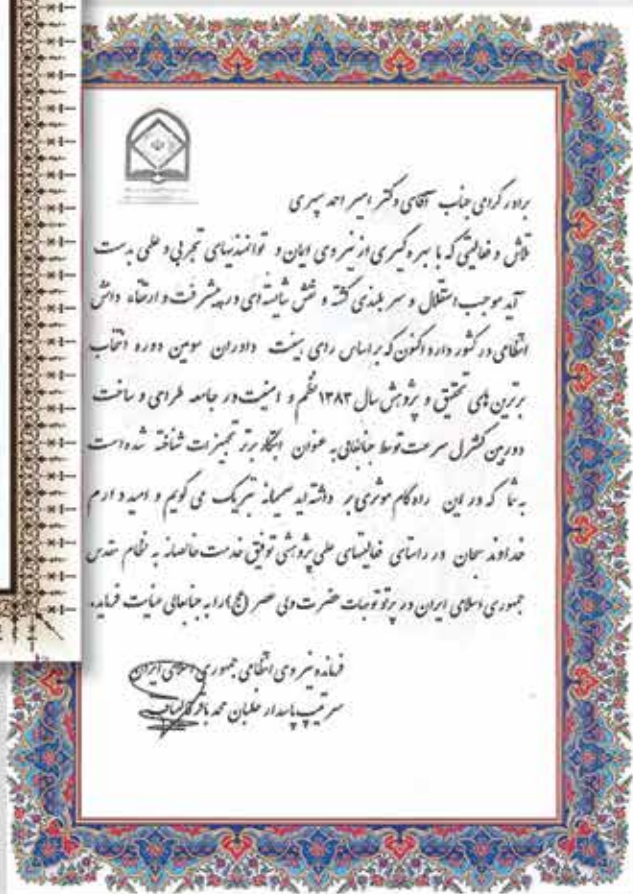 برادر گرامی جناب آقای دکتر امیر احمد سپهری
تلاش و فعالیتی که با بهره گیری از نیروی ایمان و توانمندیهای تجربی و علمی بدست
آید موجب استقلال و سر بلندی گشته و نقش شایسته ای در پیشرفت و ارتقاء دانش
انتظامی در کشور دارد اکنون که براساس رای هیئت داوران سومین دوره انتخاب
برترین های تحقیق و پژوهش سال ۱۳۸۳ نظم و امنیت در جامعه طراحی و ساخت
دوربین کنترل سرعت توسط جنابعالی به عنوان ابتکار برتر تجهیزات شناخته شده است
به شما که در این راه گام موثری بر داشته اید صمیمانه تبریک می گویم و امید دارم
خداوند سبحان در راستای فعالیتهای علمی پژوهشی توفیق خدمت خالصانه به نظام مقدس
جمهوری اسلامی ایران در پرتو توجهات حضرت ولی عصر (عج) را به جنابعالی عنایت فرماید.
فرمانده نیروی انتظامی جمهوری اسلامی ایران
سرتیپ پاسدار خلبان محمد باقر قالیباف